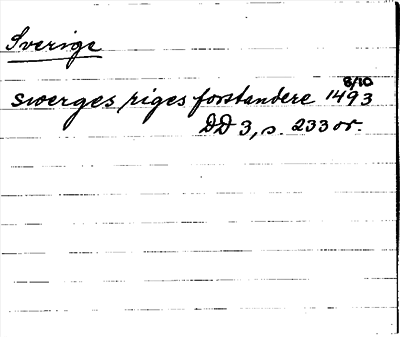 Sverige
8/10
swerges riges forstandere 1493
DD 3, s. 233 or.